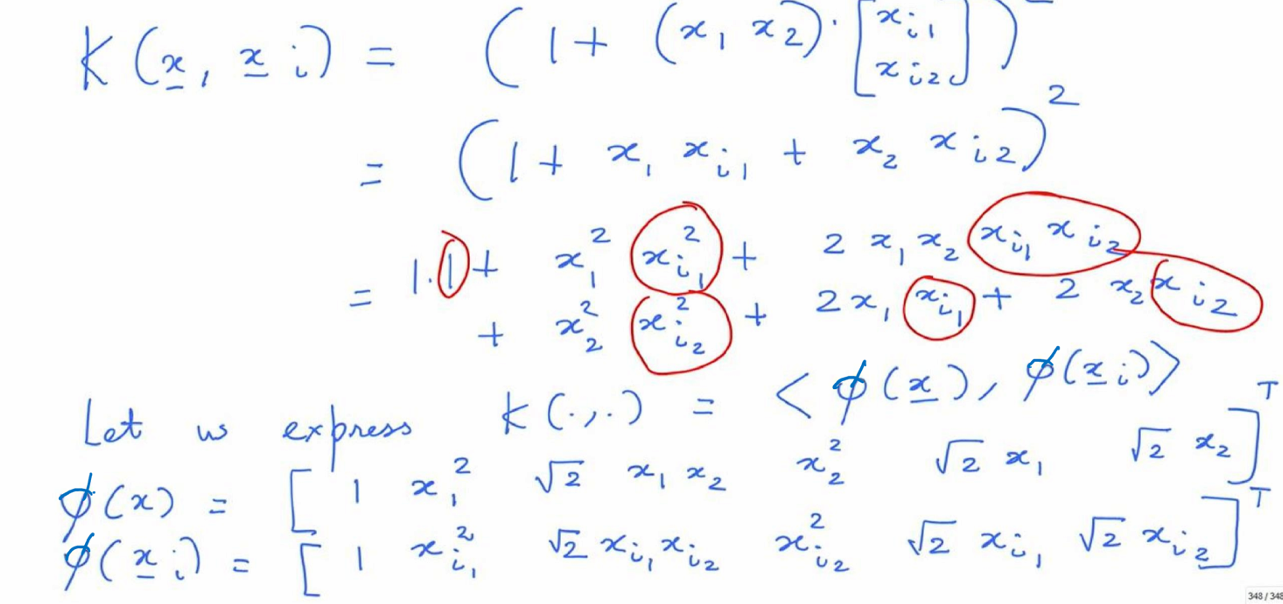 K(x, x i) = (1 + (x₁ x₂) · [x i₁ x i₂])
= (1 + x₁ x i₁ + x₂ x i₂)²
= 1.1 + x₁² x i₁² + 2 x₁ x₂ x i₁ x i₂
+ x₂² x i₂² + 2 x₁ x i₁ + 2 x₂ x i₂
Let us express K(.,.) = < ϕ(x), ϕ(x i)>
ϕ(x) = [ 1 x₁² √2 x₁ x₂ x₂² √2 x₁ √2 x₂ ]ᵀ
ϕ(x i) = [ 1 x i₁² √2 x i₁ x i₂ x i₂² √2 x i₁ √2 x i₂ ]ᵀ
348 / 348